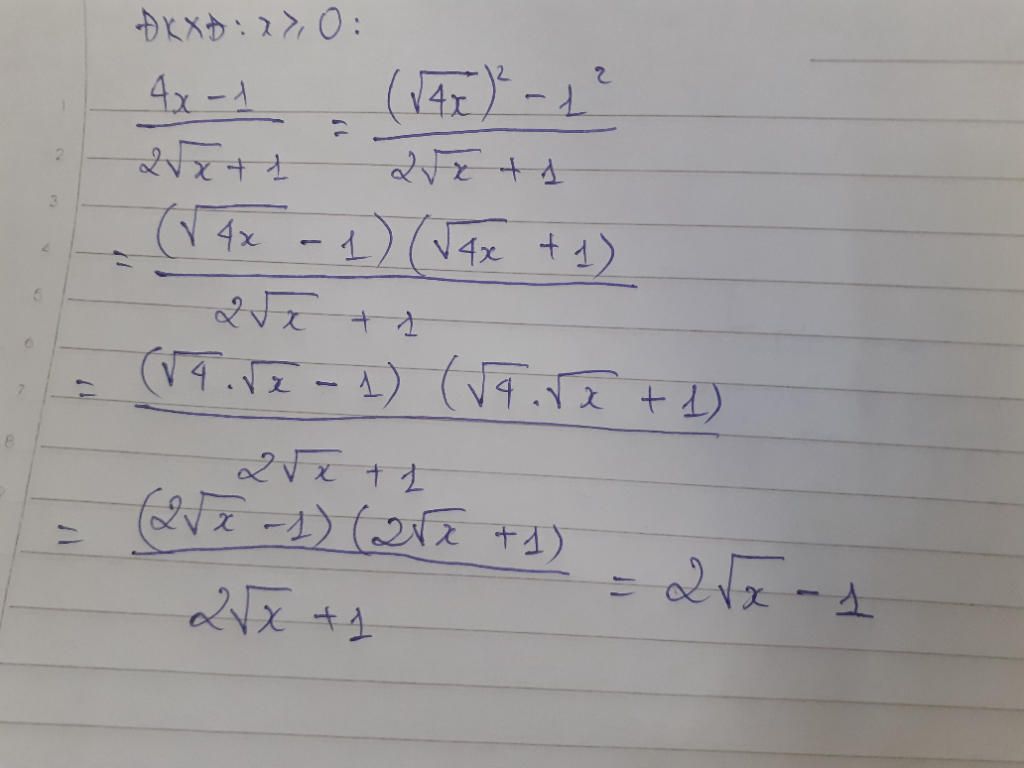 ĐKXĐ: x ≥ 0:
(4x - 1)/(2√x + 1) = ((√4x)² - 1²)/(2√x + 1)
= ((√4x - 1)(√4x + 1))/(2√x + 1)
= ((√4 . √x - 1) (√4 . √x + 1))/(2√x + 1)
= ((2√x - 1)(2√x + 1))/(2√x + 1) = 2√x - 1
1
2
3
4
5
6
7
8